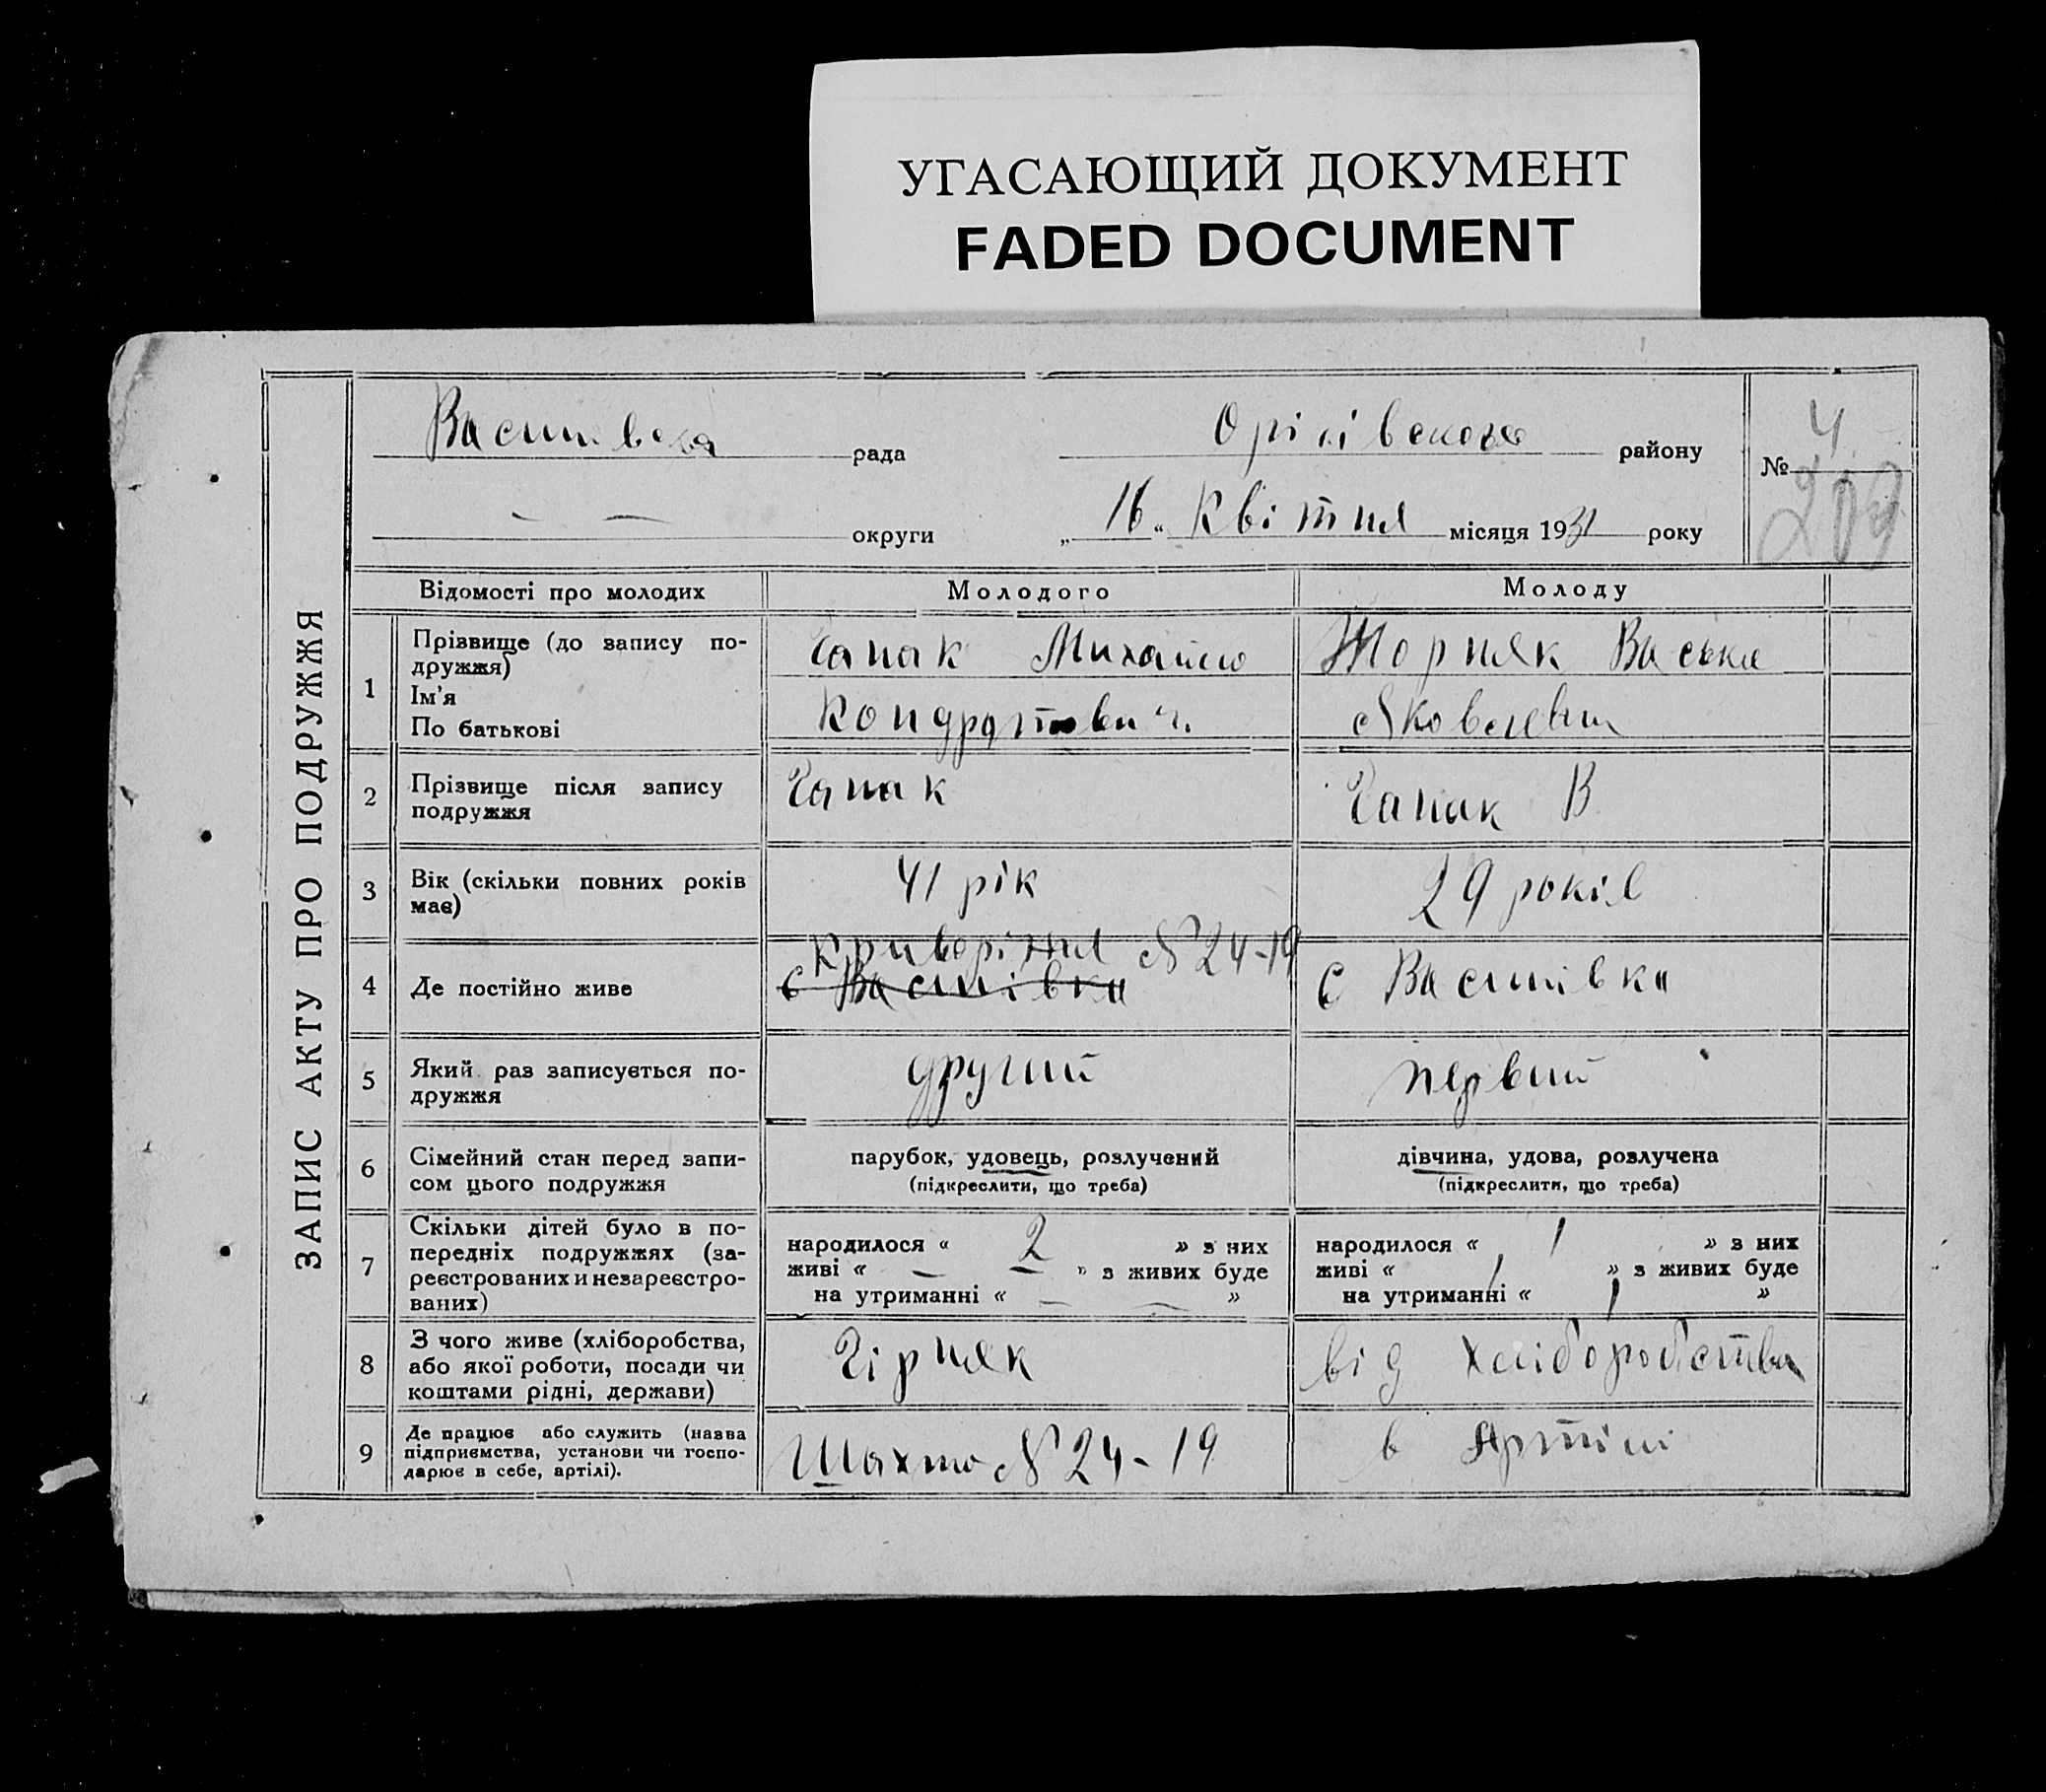 УГАСАЮЩИЙ ДОКУМЕНТ
FADED DOCUMENT
ЗАПИС АКТУ ПРО ПОДРУЖЖЯ
рада
району
№ 4
209
округи
„ 16 “ Квітня місяця 1931 року
Відомості про молодих
Молодого
Молоду
1
Прізвище (до запису по-
дружжя)
Ім'я
По батькові
Михайло
Кондратович
Яковлевна
2
Прізвище після запису
подружжя
3
Вік (скільки повних років
має)
41 рік
29 років
4
Де постійно живе
Криворіжжя №24-19
с Василівка
с Василівка
5
Який раз записується по-
дружжя
другий
первий
6
Сімейний стан перед запи-
сом цього подружжя
парубок, удовець, розлучений
(підкреслити, що треба)
дівчина, удова, розлучена
(підкреслити, що треба)
7
Скільки дітей було в по-
передніх подружжях (за-
реєстрованих и незареєстро-
ваних)
народилося « 2 » з них
живі « — — » з живих буде
на утриманні « — — »
народилося « 1 » з них
живі « 1 » з живих буде
на утриманні « 1 »
8
З чого живе (хліборобства,
або якої роботи, посади чи
коштами рідні, держави)
Гірняк
від хліборобства
9
Де працює або служить (назва
підприємства, установи чи госпо-
дарює в себе, артілі).
Шахта №24-19
в Артілі